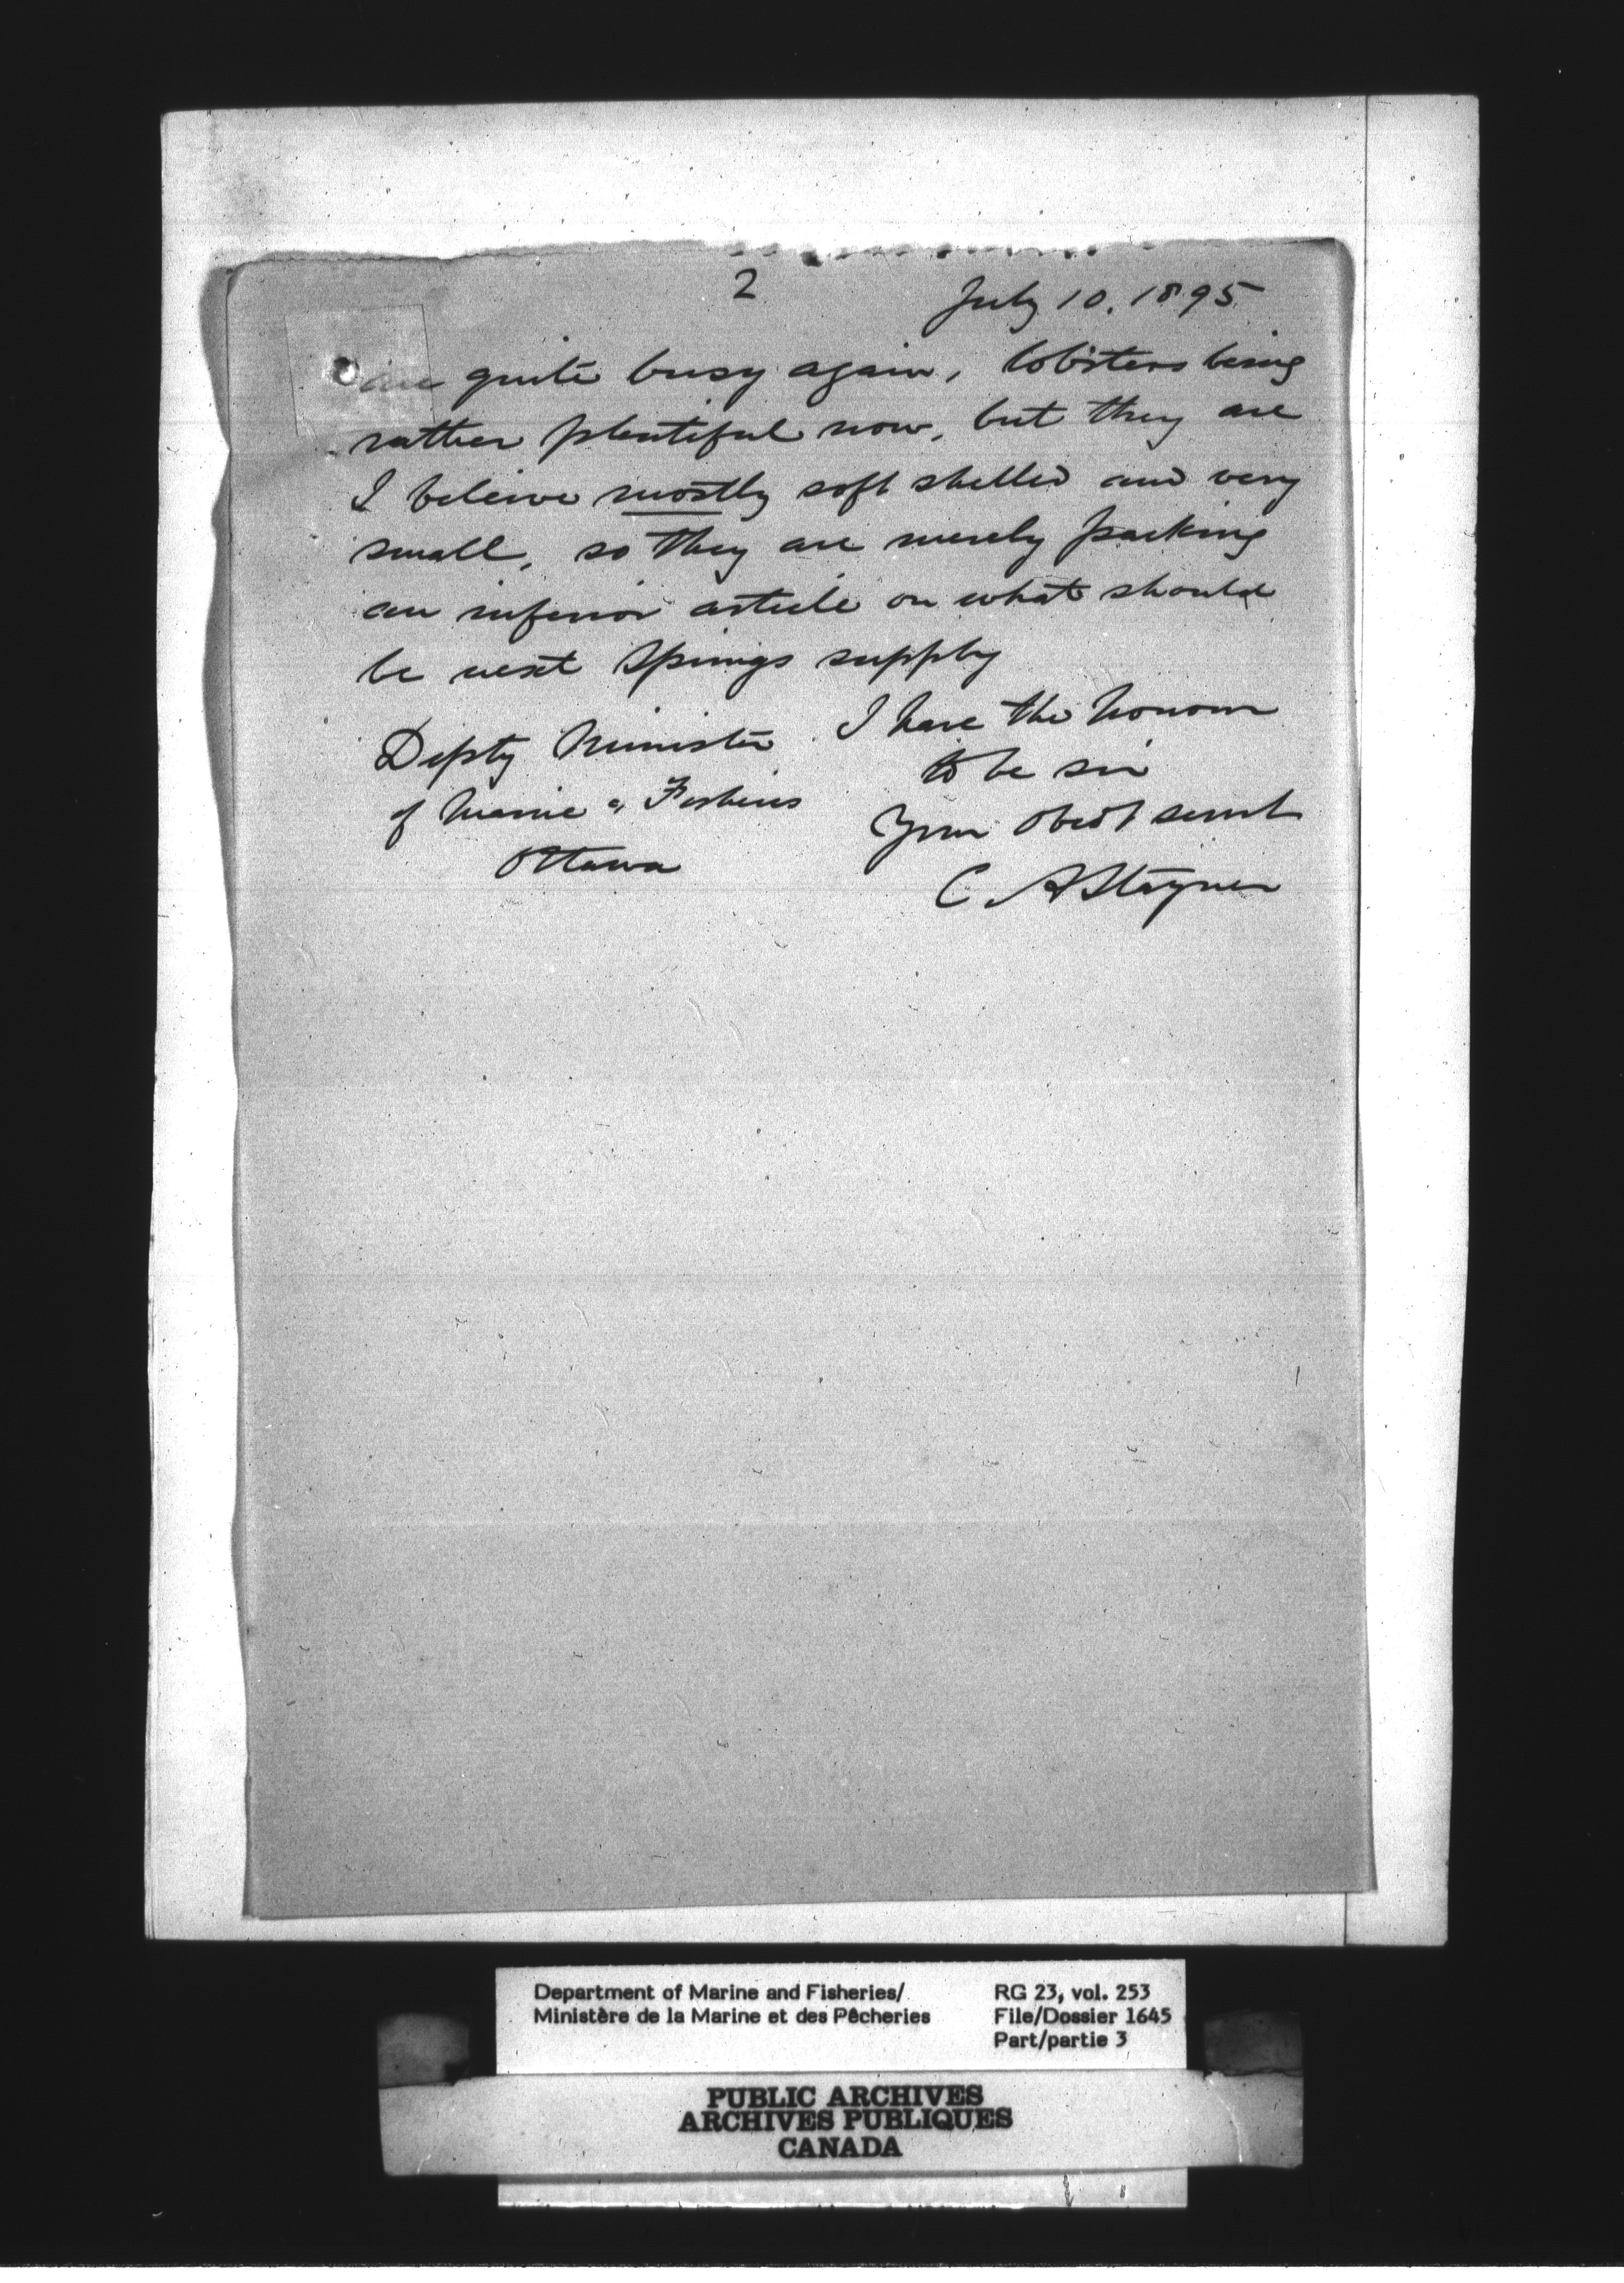 2
July 10. 1895
are quite busy again, lobsters being
rather plentiful now, but they are
I beleive mostly soft shelled and very
small, so they are merely packing
an inferior article on what should
be next Springs supply
I have the honour
to be sir
Your obedt servt
C A Stayner
Depty Minister
of Marine & Fisheries
Ottawa
Department of Marine and Fisheries/
Ministère de la Marine et des Pêcheries
RG 23, vol. 253
File/Dossier 1645
Part/partie 3
PUBLIC ARCHIVES
ARCHIVES PUBLIQUES
CANADA